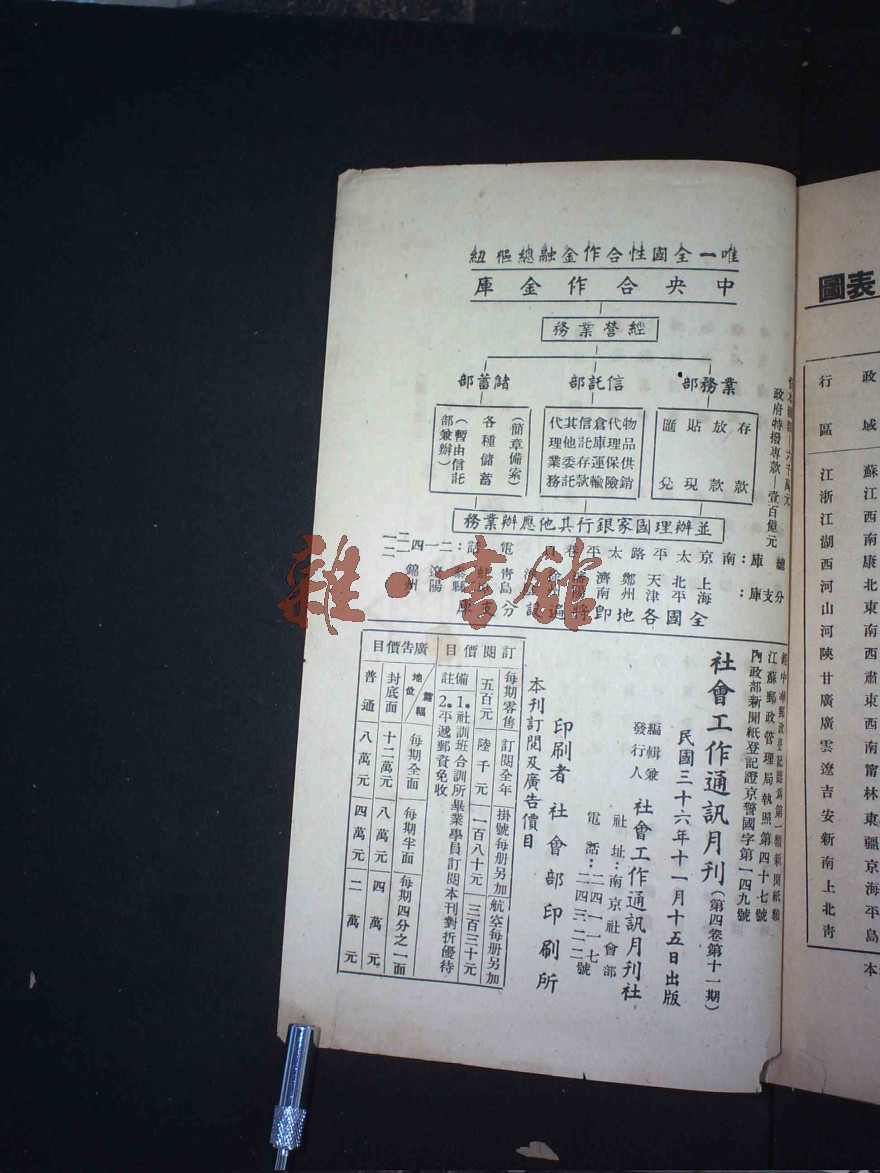 唯一全國性合作金融總樞紐
中央合作金庫
經營業務
業務部
信託部
儲蓄部
存款
放款
貼現
匯兌
物品供銷
代理保險
倉庫運輸
信託存款
其他委託
代理業務
(簡章備案)
各種儲蓄
(暫由信託
部兼辦)
並辦理國家銀行其他應辦業務
政府特撥專款—壹百億元
總庫:南京太平路太平巷
電話:二一四
分支庫:
上海
北平
天津
鄭州
濟南
青島
遼陽
錦州
全國各地即將遍設分支庫
江蘇郵政管理局執照第四十七號
內政部新聞紙登記證京警國字第一四九號
社會工作通訊月刊(第四卷第十一期)
民國三十六年十一月十五日出版
編輯兼
發行人 社會工作通訊月刊社
社址:南京社會部
電話:二四一一七
二四三二二號
印刷者 社會部印刷所
本刊訂閱及廣告價目
訂閱價目
每期零售 訂閱全年 掛號每册另加 航空每册另加
五百元 陸千元 一百八十元 三百三十元
備註
1.社訓班合訓所畢業學員訂閱本刊對折優待
2.平遞郵資免收
廣告價目
地位 篇幅 每期全面 每期半面 每期四分之一面
封底面 十二萬元 八萬元 四萬元
普通 八萬元 四萬元 二萬元
圖表
行政區域
江蘇
浙江
江西
湖南
西康
河南
山東
河南
陝西
甘肅
廣東
廣西
雲南
遼甯
吉林
安東
新疆
南京
上海
北平
青島
本
雜·書館